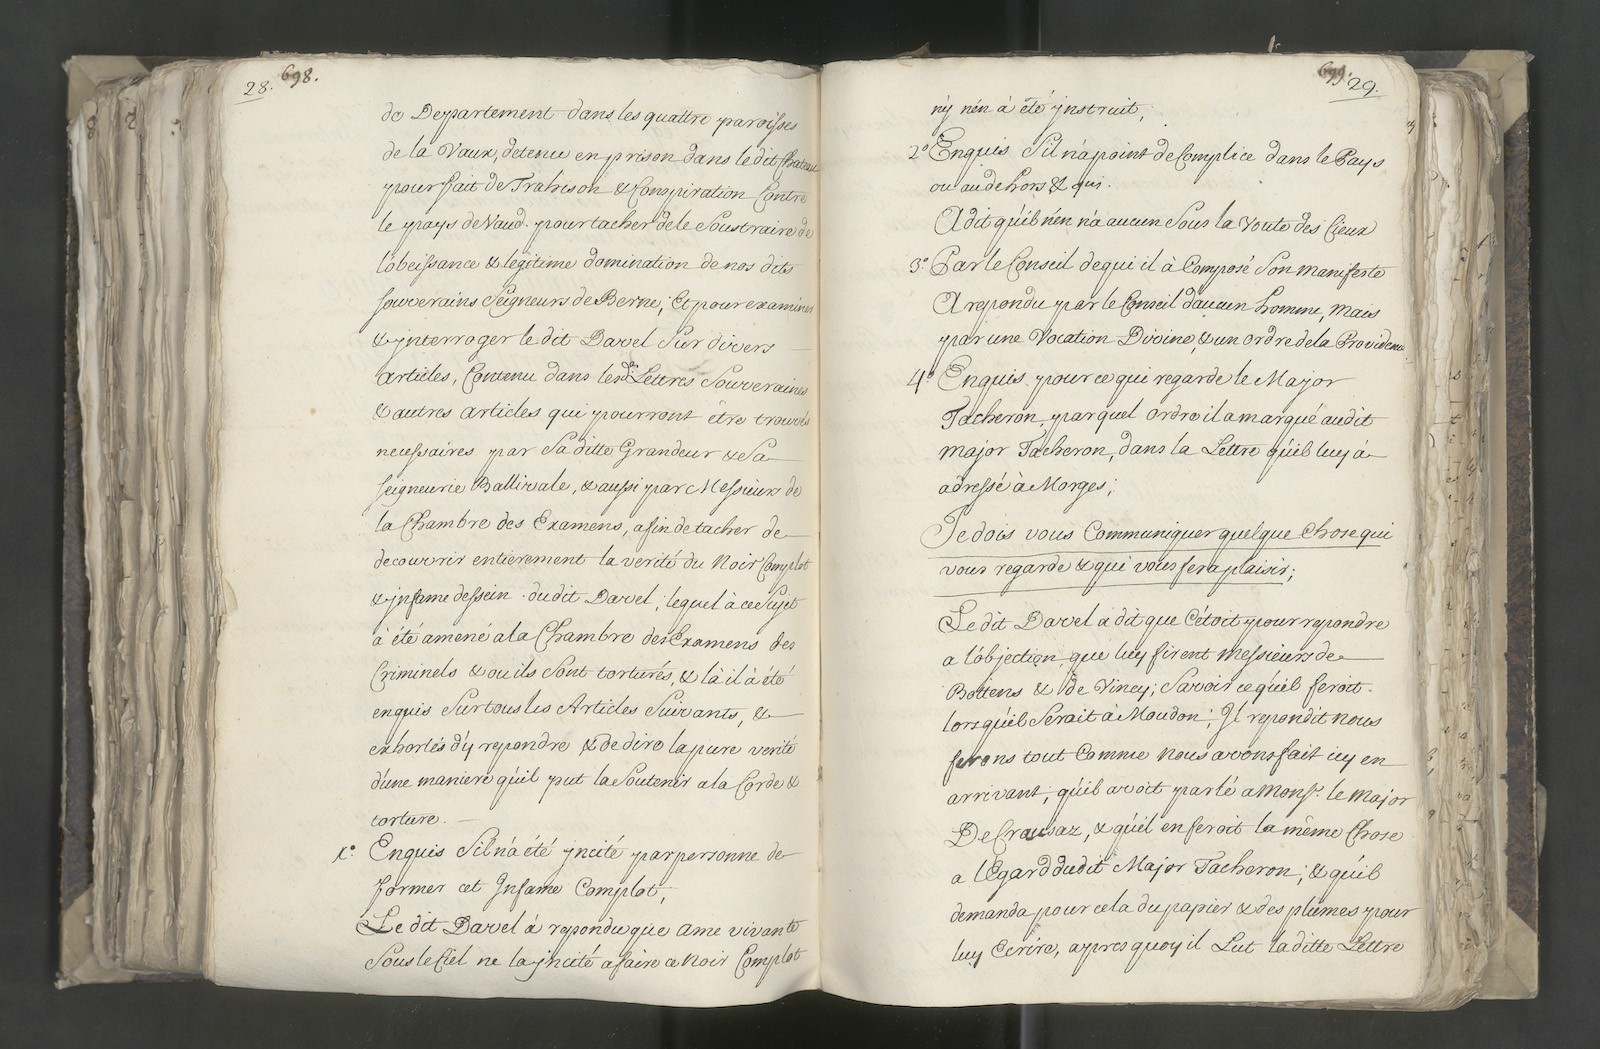 28. 698.
de Departement dans les quattre paroisses
de la Vaux, detenu en prison dans le dit Chateau
pour fait de Trahison & Conspiration Contre
le pays de Vaud. pour tacher de le Soustraire de
l'obeissance & legitime domination de nos dits
souverains Seigneurs de Berne; Et pour examiner
& jnterroger le dit Davel Sur divers
articles, Contenu dans les des: Lettres Souveraines
& autres articles qui pourront être trouvés
necessaires par Sa ditte Grandeur & Sa
seigneurie Ballivale, & aussi par Messieurs de
la Chambre des Examens, afin de tacher de
decouvrir entierement la verité du Noir Complot
& jnfame dessein du dit Davel; lequel à ce Sujet
à été amené a la Chambre des Examens des
Criminels & ou ils Sont torturés, & là il à été
enquis Sur tous les Articles Suivants, &
exhortés d'y repondre & de dire la pure verité
d'une maniere qu'il put la Soutenir a la Corde &
torture.
1.o Enquis S'il n'a été jncité par personne de
former cet Jnfame Complot;
Le dit Davel à repondu que ame vivante
Sous le Ciel ne la jncité a faire ce noir Complot
699. 29.
n'y n'en à été jnstruit;
2.o Enquis S'il n'a point de Complice dans le Pays
ou au dehors & qui.
A dit qu'il n'en n'a aucun Sous la Voute des Cieux
3.o Par le Conseil de qui il à Composé Son manifeste
A repondu par le Conseil d'aucun homme, mais
par une Vocation Divine, & un ordre de la Providence
4.o Enquis pour ce qui regarde le Major
Tacheron, par quel ordre il a marqué audit
major Tacheron, dans la Lettre qu'il luy à
adressé à Morges;
Je dois vous Communiquer quelque Chose qui
vous regarde & qui vous fera plaisir;
Le dit Davel a dit que C'étoit pour repondre
a l'objection que luy firent Messieurs de
Bottens & de Vincy; Savoir ce qu'il feroit
lors qu'il Serait à Moudon; Jl repondit nous
ferons tout Comme nous avons fait icy en
arrivant; qu'il avoit parlé a Mons.r le Major
De Crousaz, & qu'il en feroit la même Chose
a l'Egard dudit Major Tacheron; & qu'il
demanda pour cela du papier & des plumes pour
luy Ecrire, apres quoy il Lut la ditte Lettre